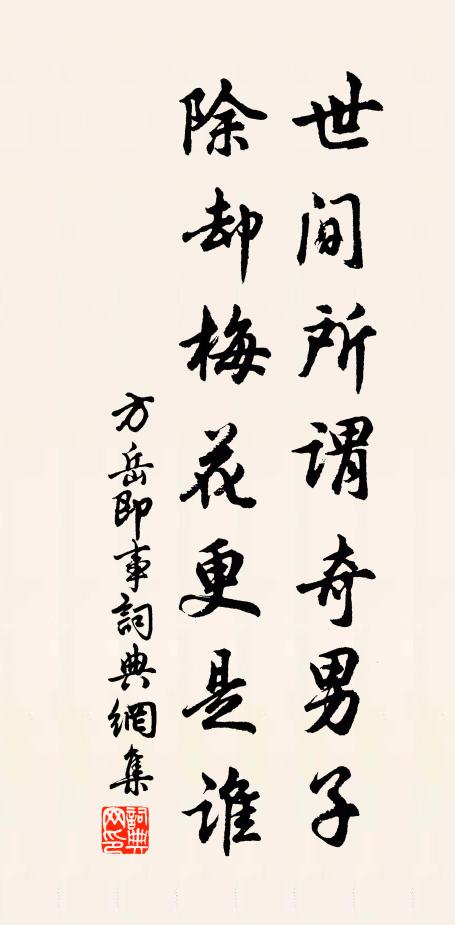 世间所谓奇男子
除却梅花更是谁
方岳即事詞典網集
詞典网印